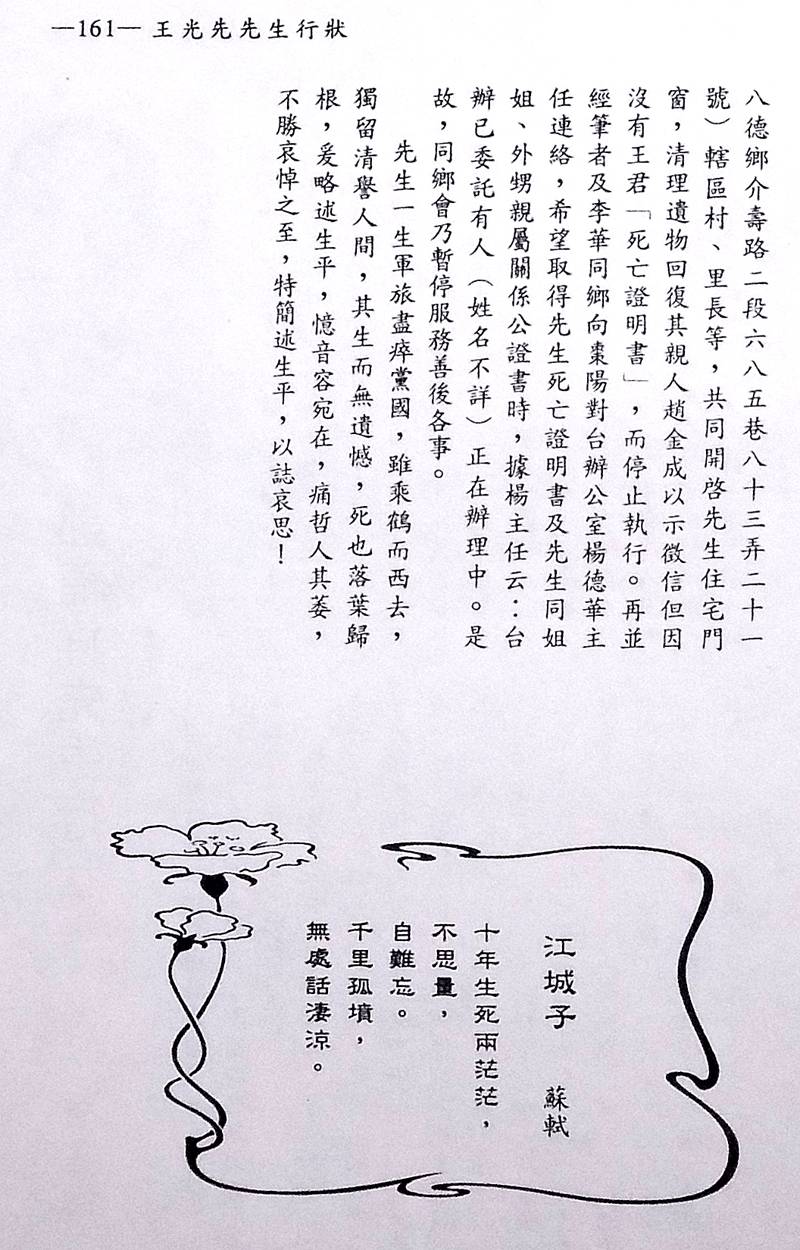 —161— 王光先先生行狀
八德鄉介壽路二段六八五巷八十三弄二十一
號）轄區村、里長等，共同開啓先生住宅門
窗，清理遺物回復其親人趙金成以示徵信但因
沒有王君「死亡證明書」，而停止執行。再並
經筆者及李華同鄉向棗陽對台辦公室楊德華主
任連絡，希望取得先生死亡證明書及先生同姐
姐、外甥親屬關係公證書時，據楊主任云：台
辦已委託有人（姓名不詳）正在辦理中。是
故，同鄉會乃暫停服務善後各事。
先生一生軍旅盡瘁黨國，雖乘鶴而西去，
獨留清譽人間，其生而無遺憾，死也落葉歸
根，爰略述生平，憶音容宛在，痛哲人其萎，
不勝哀悼之至，特簡述生平，以誌哀思！
江城子 蘇軾
十年生死兩茫茫，
不思量，
自難忘。
千里孤墳，
無處話淒涼。